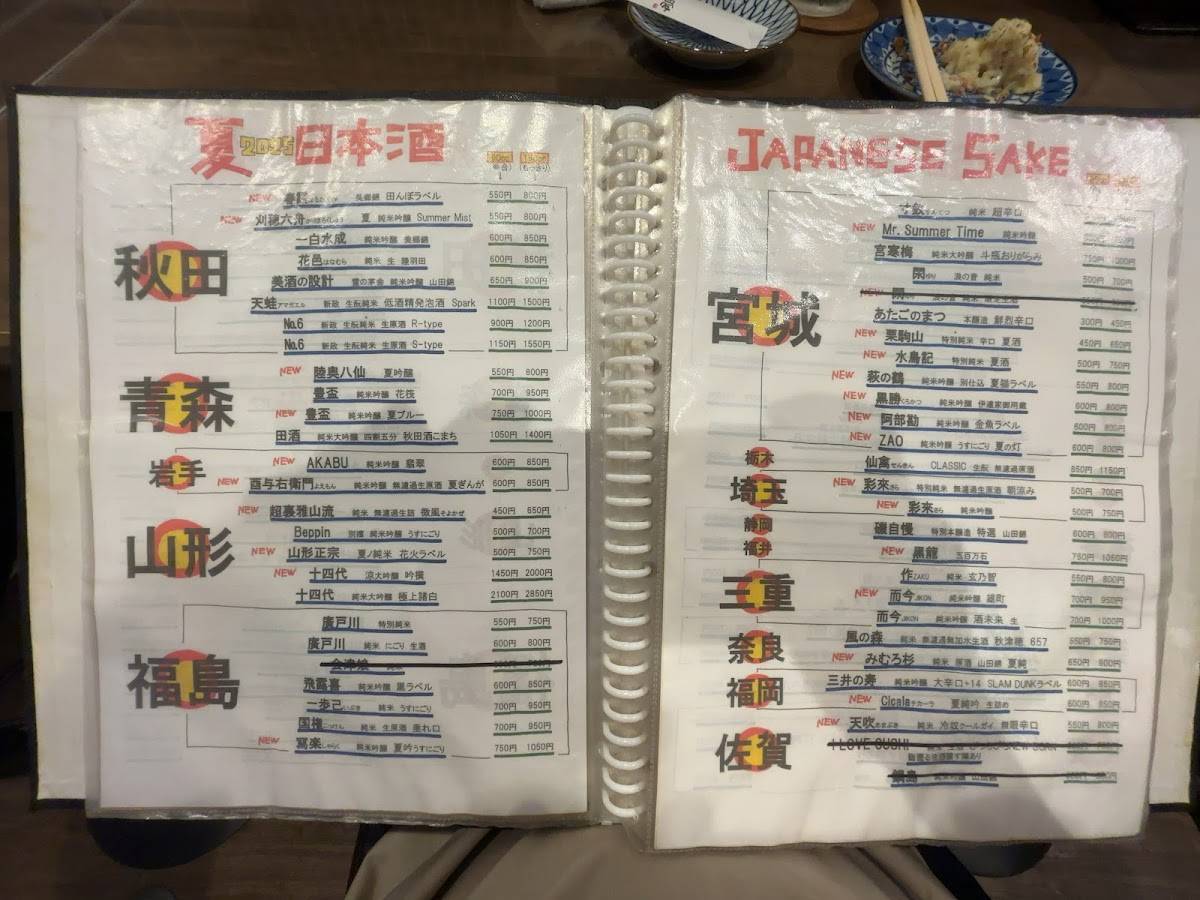 夏 2025 日本酒
秋田
NEW 春霞 美郷錦 田んぼラベル 550円 800円
NEW 刈穂六舟 夏 純米吟醸 Summer Mist 550円 800円
一白水成 純米吟醸 美郷錦 600円 850円
花邑はなむら 純米 生 陸羽田 600円 850円
美酒の設計 雪の茅舎 純米吟醸 山田錦 650円 900円
天蛙アマガエル 新政 生酛純米 低酒精発泡酒 Spark 1100円 1500円
No.6 新政 生酛純米 生原酒 R-type 900円 1200円
No.6 新政 生酛純米 生原酒 S-type 1150円 1550円
青森
NEW 陸奥八仙 夏吟醸 550円 800円
豊盃 純米吟醸 花筏 700円 950円
NEW 豊盃 純米吟醸 夏ブルー 750円 1000円
田酒 純米大吟醸 四割五分 秋田酒こまち 1050円 1400円
岩手
NEW AKABU 純米吟醸 翡翠 600円 850円
NEW 酉与右衛門よえもん 純米吟醸 無濾過生原酒 夏ぎんが 600円 850円
山形
NEW 超裏雅山流 純米 無濾過生詰 微風そよかぜ 450円 650円
Beppin 別撰 純米吟醸 うすにごり 500円 700円
NEW 山形正宗 夏ノ純米 花火ラベル 500円 750円
NEW 十四代 涼大吟醸 吟撰 1450円 2000円
十四代 純米大吟醸 極上諸白 2100円 2850円
福島
廣戸川 特別純米 550円 750円
廣戸川 純米 にごり 生酒 600円 800円
会津娘
飛露喜 純米吟醸 黒ラベル 600円 850円
一歩己いぶき 純米 うすにごり 700円 950円
国権 純米 生原酒 垂れ口 700円 950円
NEW 寫楽しゃらく 純米吟醸 夏吟うすにごり 750円 1050円
JAPANESE SAKE
宮城
純米 超辛口
NEW Mr. Summer Time 純米吟醸
宮寒梅 純米大吟醸 斗瓶おりがらみ
閖 浪の音 純米 500円 700円
あたごのまつ 本醸造 鮮烈辛口 300円 450円
NEW 栗駒山 特別純米 辛口 夏酒 450円 650円
NEW 水鳥記 特別純米 夏酒 500円 750円
NEW 萩の鶴 純米吟醸 別仕込 夏猫ラベル 550円 800円
NEW 黒勝くろかつ 純米吟醸 伊達家御用蔵 600円 800円
NEW 阿部勘 純米吟醸 金魚ラベル 600円 800円
NEW ZAO 純米吟醸 うすにごり 夏の灯 600円 800円
栃木
仙禽せんきん CLASSIC 生酛 無濾過原酒 850円 1150円
埼玉
NEW 彩來さら 特別純米 無濾過生原酒 朝涼み 500円 700円
NEW 彩來さら 純米吟醸 500円 750円
静岡
磯自慢 特別本醸造 特選 山田錦 600円 800円
福井
NEW 黒龍 五百万石 750円 1050円
三重
作ZAKU 純米 玄乃智 550円 800円
NEW 而今JIKON 純米吟醸 雄町 700円 950円
而今JIKON 純米吟醸 酒未来 生 700円 1000円
奈良
風の森 純米 無濾過無加水生酒 秋津穂 657 550円 750円
NEW みむろ杉 純米 原酒 山田錦 夏純 650円 900円
福岡
三井の寿 純米吟醸 大辛口+14 SLAM DUNKラベル 600円 850円
NEW Cicalaチカーラ 夏純吟 生詰め 600円 850円
佐賀
NEW 天吹あまぶき 純米 冷奴クールガイ 無限辛口 550円 800円
I LOVE SUSHI
鍋島 純米吟醸 山田錦